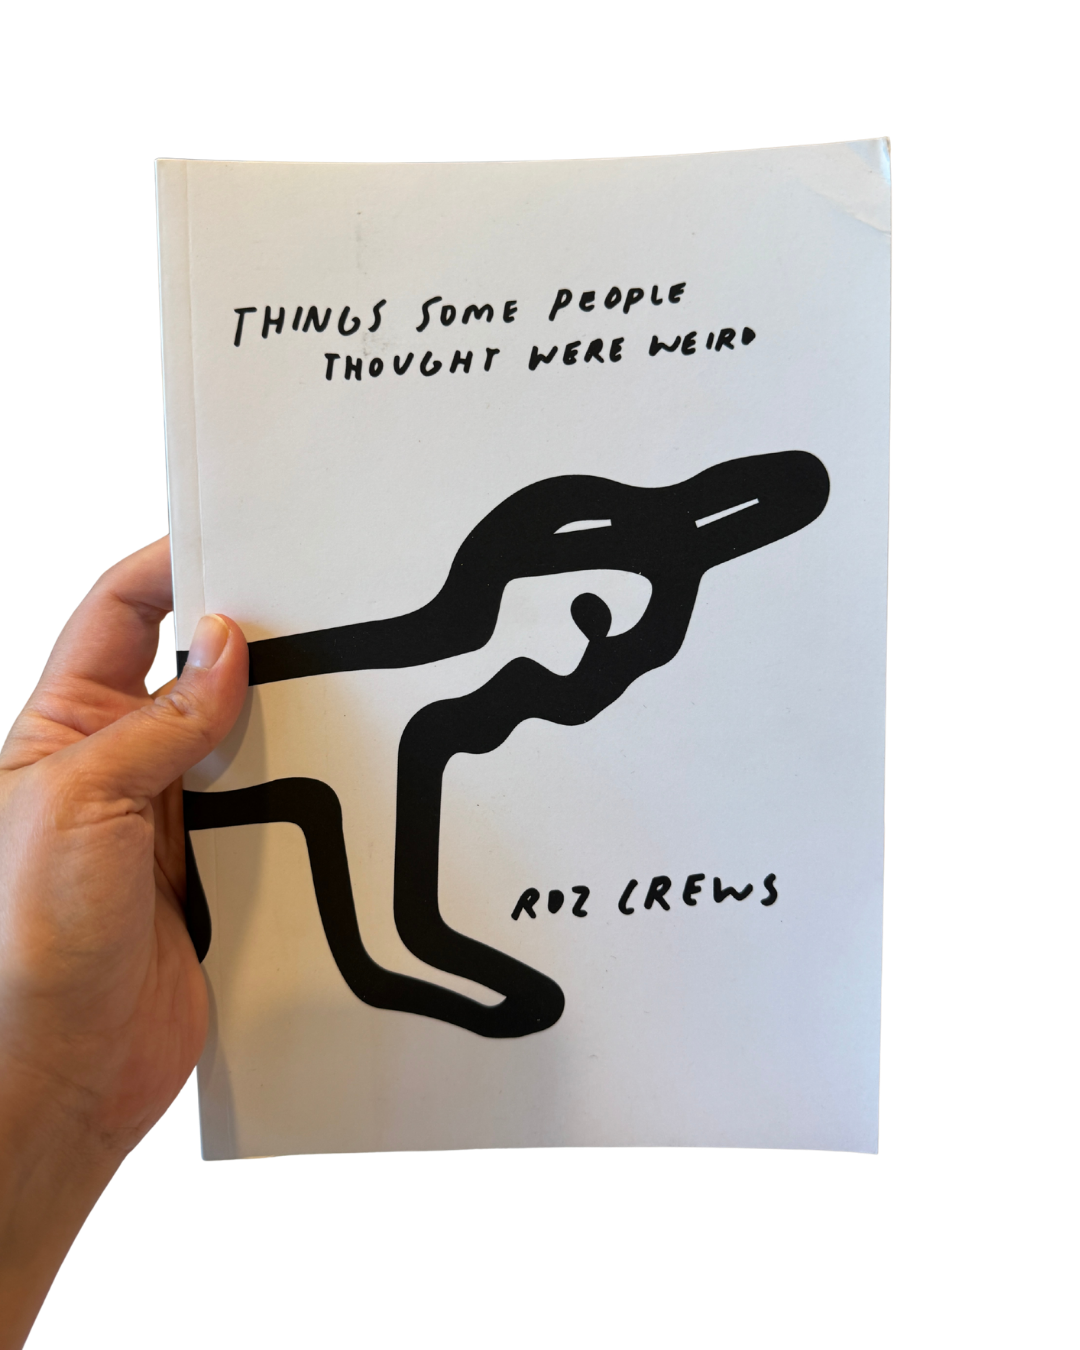 THINGS SOME PEOPLE
THOUGHT WERE WEIRD
ROZ CREWS